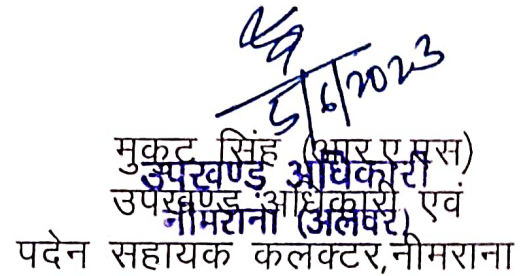 5/6/2023
मुकट सिंह (आर.ए.एस)
उपखण्ड अधिकारी
उपखण्ड अधिकारी एवं
नीमराना (अलवर)
पदेन सहायक कलक्टर,नीमराना